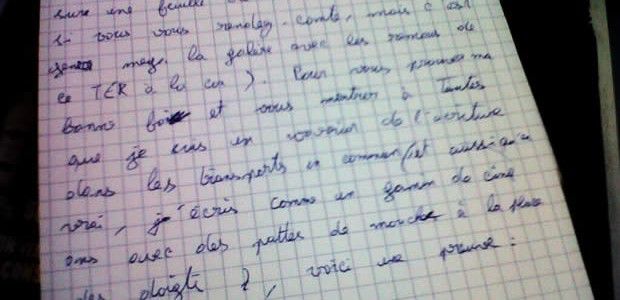 sur une feuille
si vous vous rendez-compte, mais c'est
mega la galère avec les remous de
ce TER à la con). Pour vous prouver ma
bonne foi et vous montrer à Toutes
que je suis en de l'écriture
dans les transports en commun (et aussi qu'en
vrai, j'écris comme un gamin de cinq
ans avec des pattes de mouche à la place
des doigts), voici une preuve :